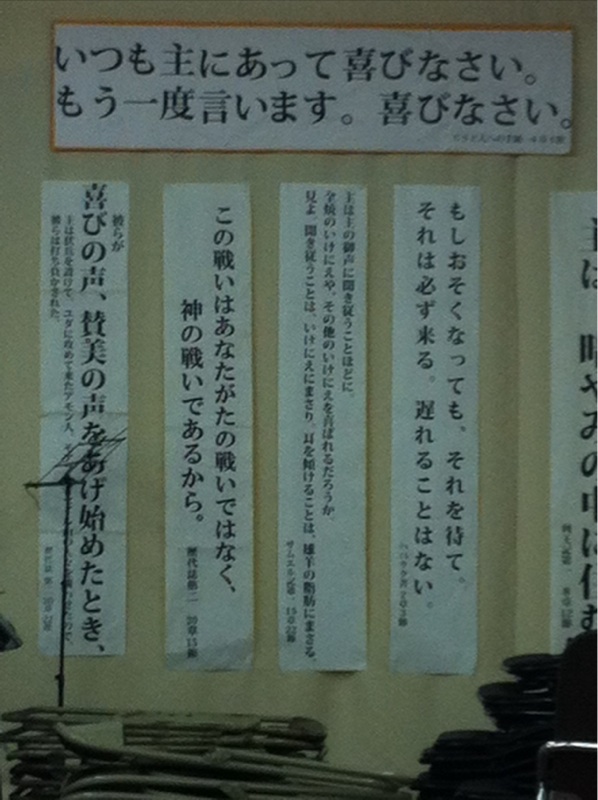 いつも主にあって喜びなさい。
もう一度言います。喜びなさい。
ピリピ人への手紙 4章4節
主は、暗やみの中に住む
列王記第一 8章12節
もしおそくなっても、それを待て。
それは必ず来る。遅れることはない。
ハバクク書 2章3節
主は主の御声に聞き従うことほどに、
全焼のいけにえや、その他のいけにえを喜ばれるだろうか。
見よ。聞き従うことは、いけにえにまさり、耳を傾けることは、雄羊の脂肪にまさる。
サムエル記第一 15章22節
この戦いはあなたがたの戦いではなく、
神の戦いであるから。
歴代誌第二 20章15節
彼らが
喜びの声、賛美の声をあげ始めたとき、
主は伏兵を設けて、ユダに攻めて来たアモン人、
彼らは打ち負かされた。
歴代誌 第二 20章22節